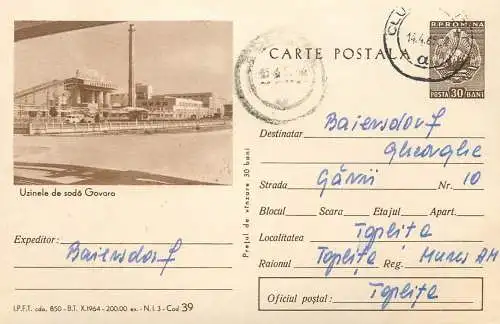 CARTE POSTALA
R.P.ROMINA
POSTA 30 BANI
CLUJ
14.4.65
Uzinele de sodă Govora
Expeditor: Baiersdorf
I.P.F.T. cda. 850 - B.T. X.1964 - 200.00 ex. - N.I. 3 - Cod 39
Prețul de vînzare 30 bani
Destinatar Baiersdorf
Gheorghe
Strada Gării Nr. 10
Blocul Scara Etajul Apart.
Localitatea Toplița
Raionul Toplița Reg. Mureș AM
Oficiul poștal: Toplița